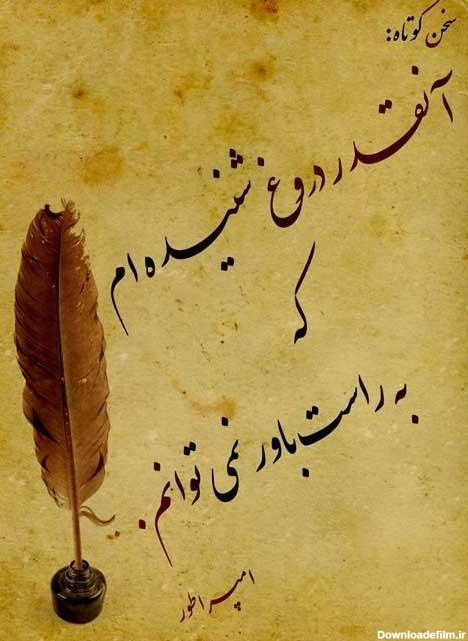 سخن کوتاه:
آنقدر دروغ شنیده ام
که
به راست باور نمی توانم.
امپراطور
Downloadefilm.ir